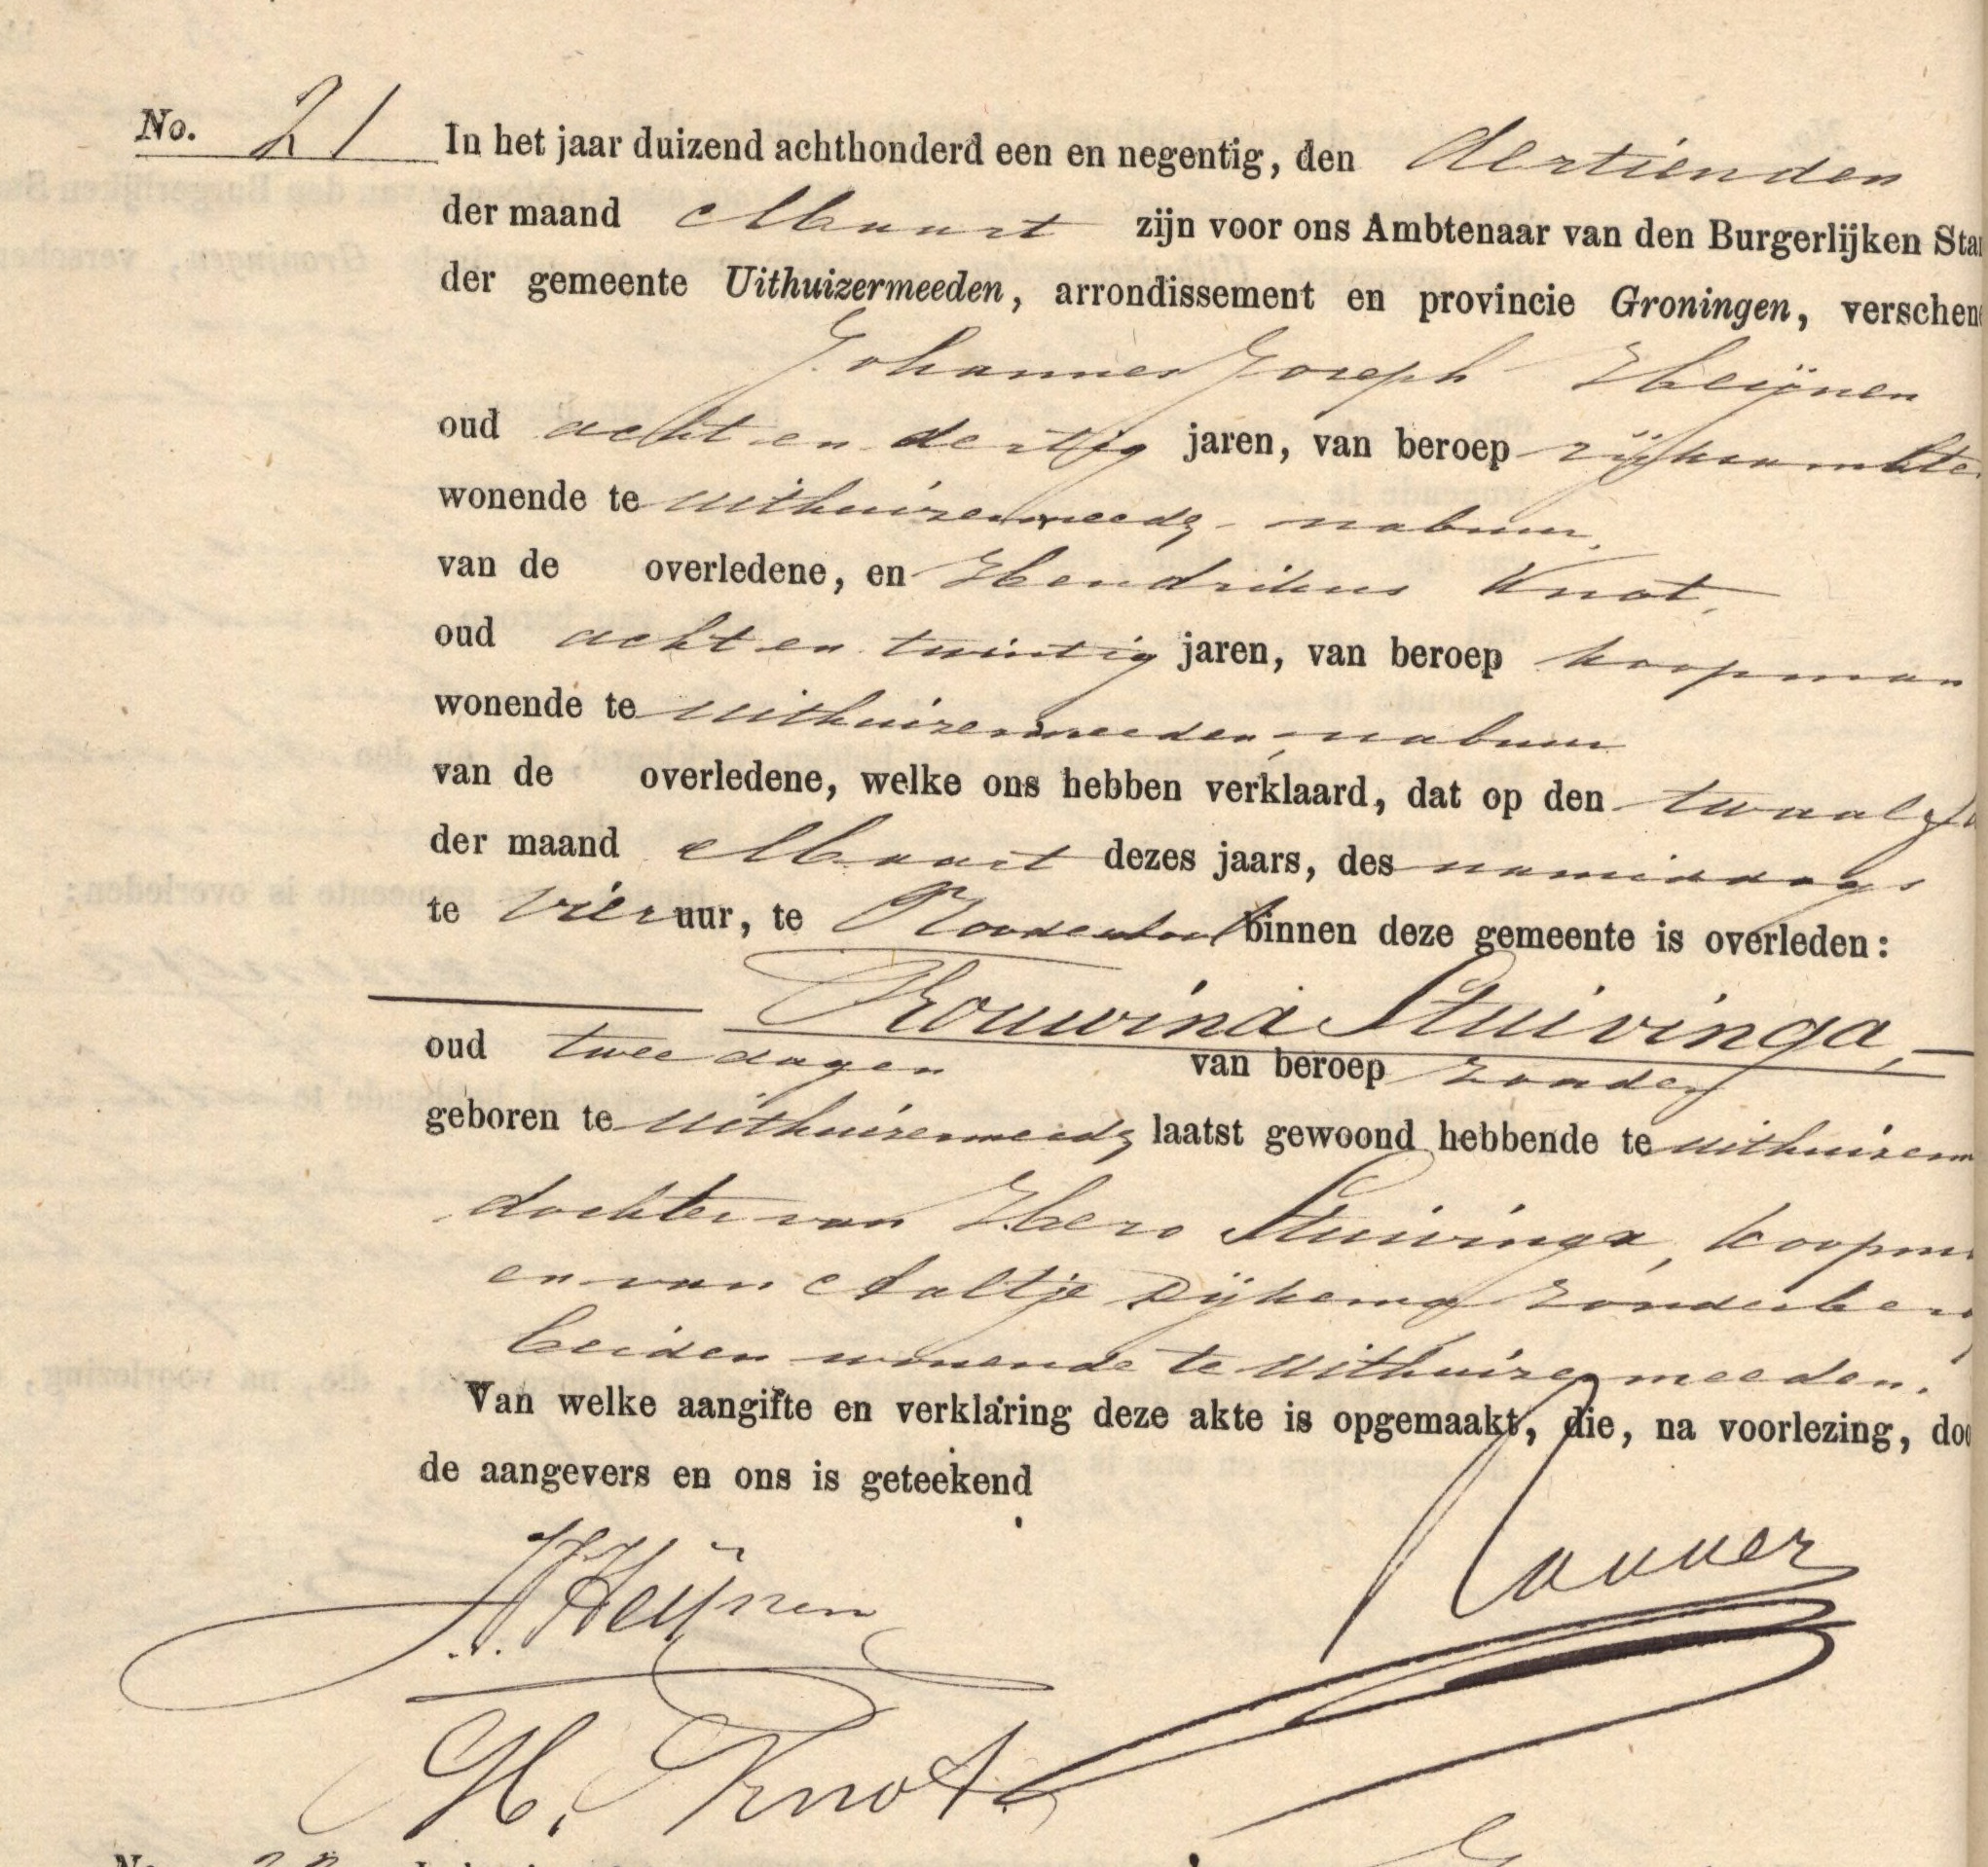 No. 21 In het jaar duizend achthonderd een en negentig, den dertienden
der maand Maart zijn voor ons Ambtenaar van den Burgerlijken Sta
der gemeente Uithuizermeeden, arrondissement en provincie Groningen, verschene
Johannes Joseph Heijnen
oud acht en dertig jaren, van beroep rijksambte
wonende te Uithuizermeedn nabuur,
van de overledene, en Hendrikus Knot,
oud acht en twintig jaren, van beroep koopman
wonende te Uithuizermeeden, nabuur
van de overledene, welke ons hebben verklaard, dat op den twaalfd
der maand Maart dezes jaars, des namiddags
te vier uur, te Roodeschool binnen deze gemeente is overleden:
Trouwina Stuivinga,
oud twee dagen van beroep zonder
geboren te Uithuizermeedn laatst gewoond hebbende te Uithuizerm
dochter van Hero Stuivinga, koopm
en van Aaltje Dijkema zonder ber
beiden wonende te Uithuizermeeden.
Van welke aangifte en verklaring deze akte is opgemaakt, die, na voorlezing, doo
de aangevers en ons is geteekend
J.J. Heijnen
H. Knot
No.